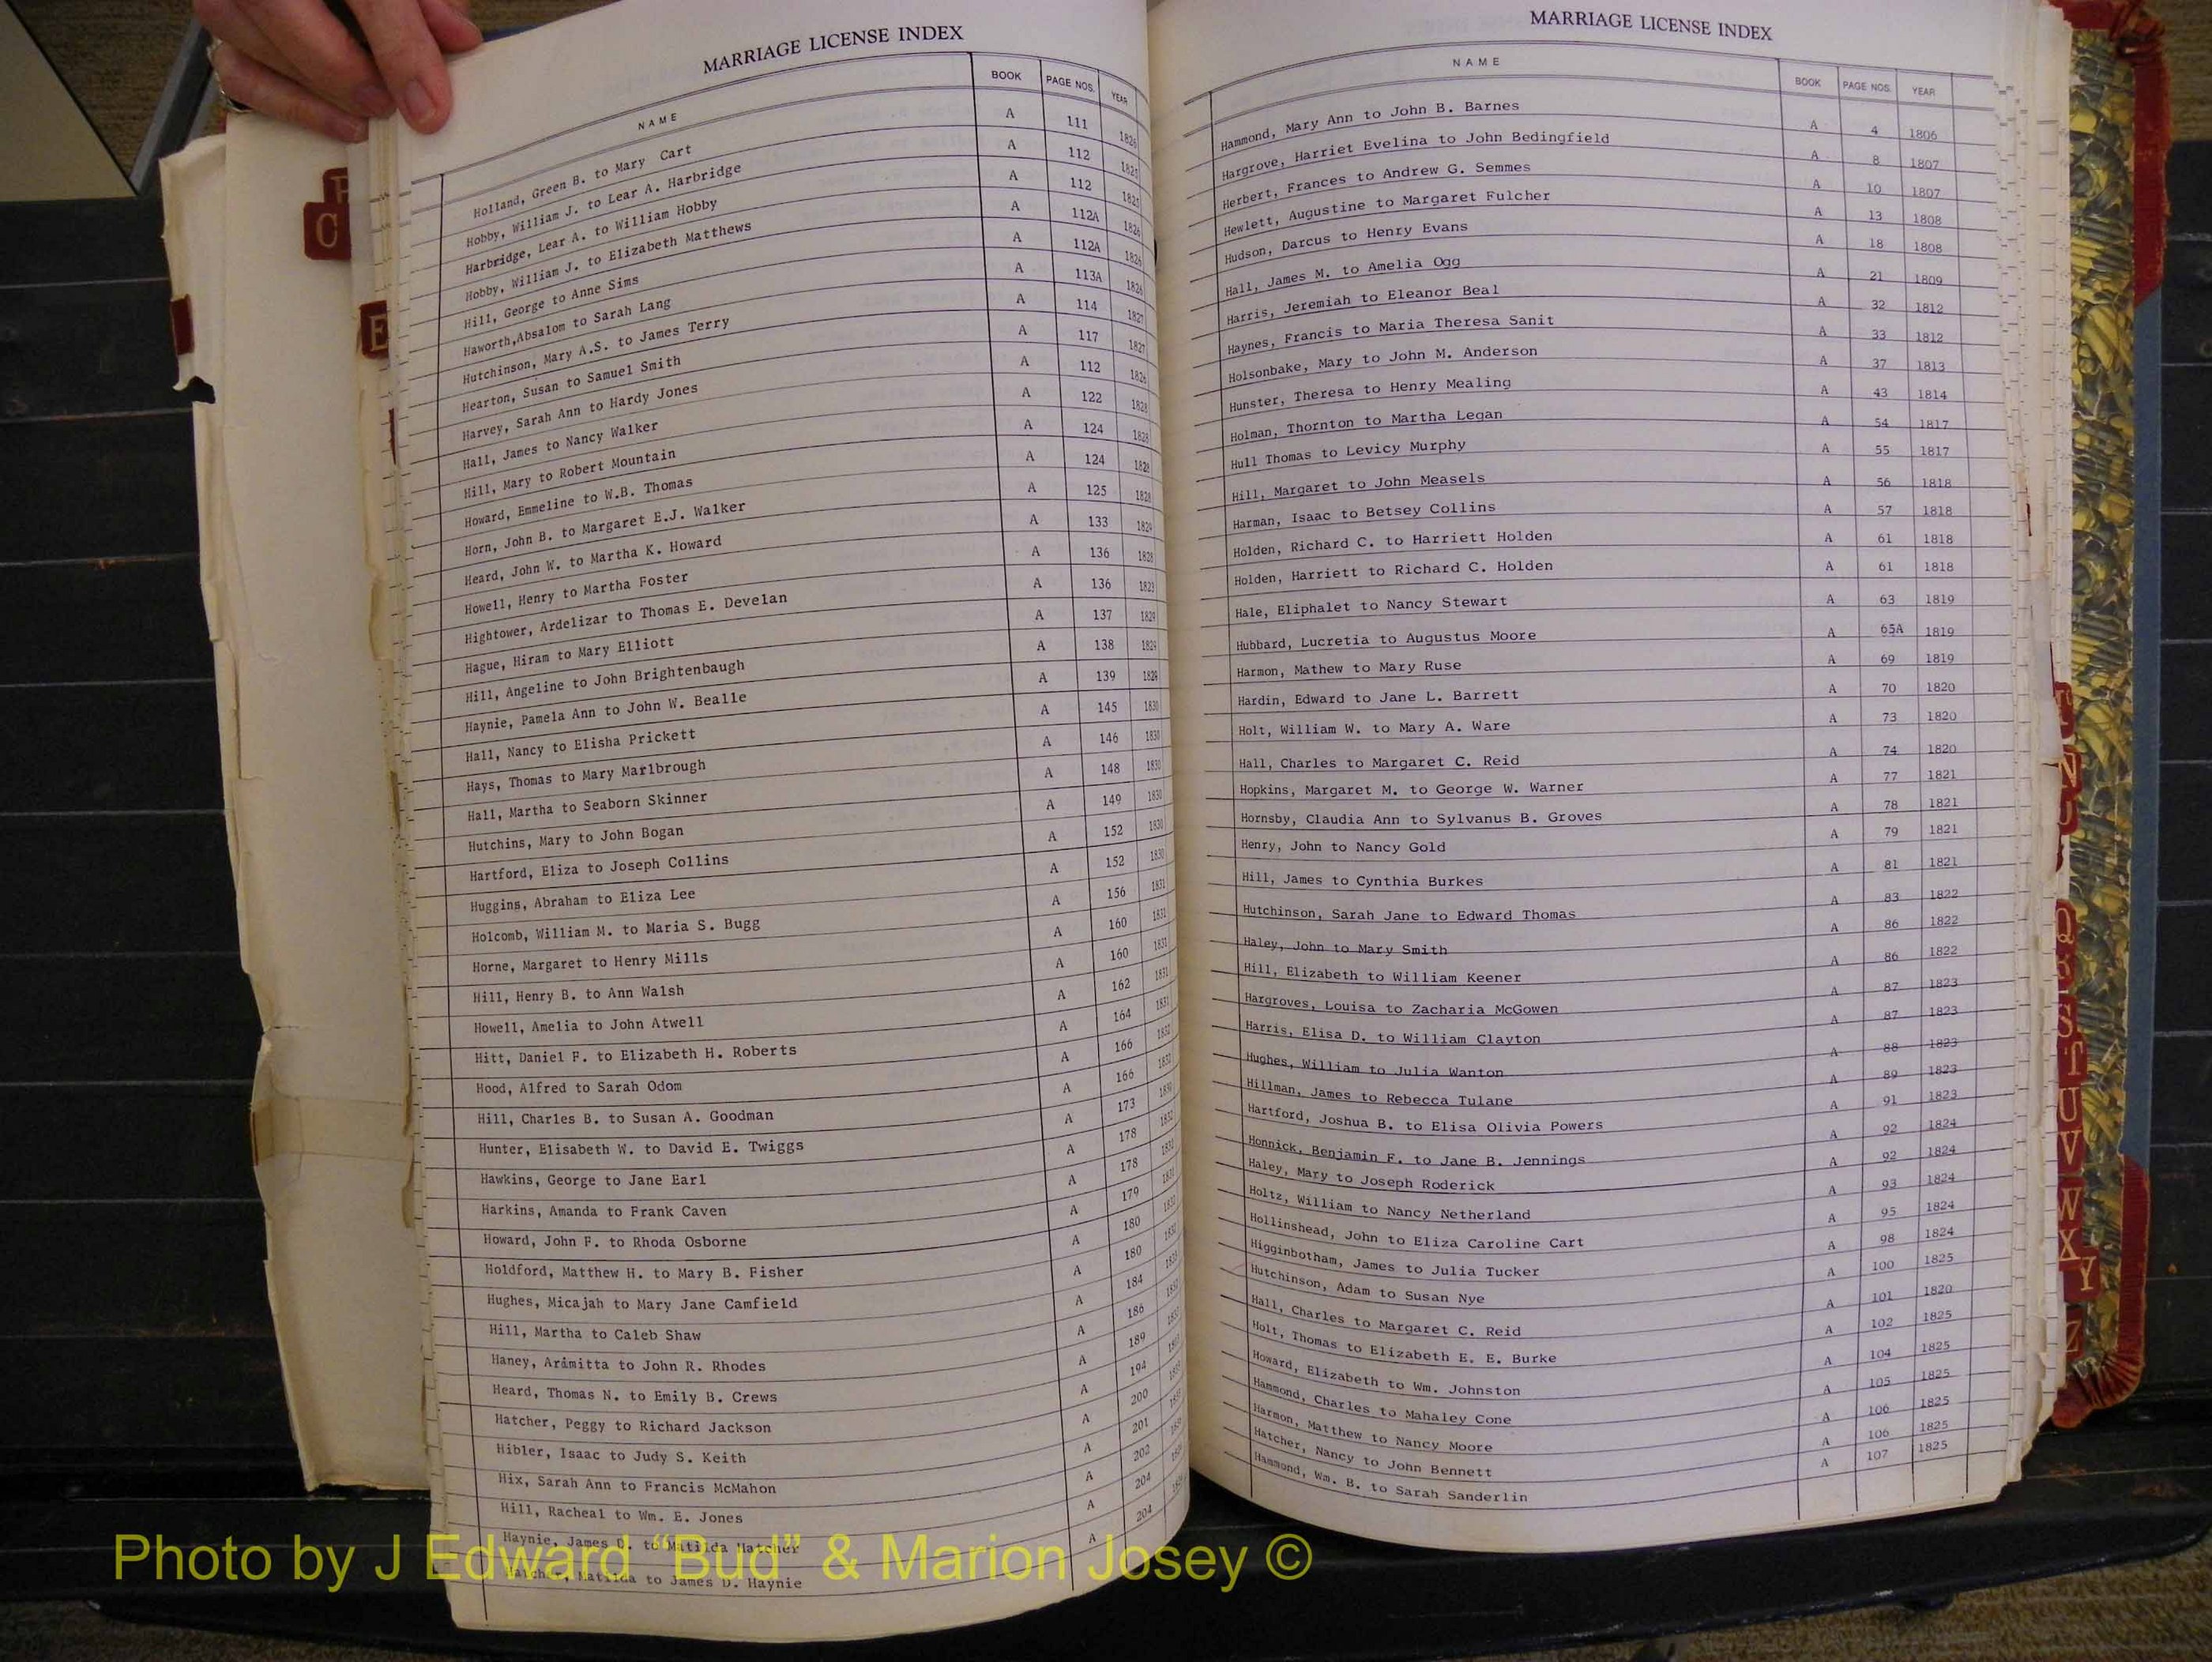 MARRIAGE LICENSE INDEX
NAME BOOK PAGE NOS. YEAR
Holland, Green B. to Mary Cart A 111 1826
Hobby, William J. to Lear A. Harbridge A 112 1825
Harbridge, Lear A. to William Hobby A 112 1825
Hobby, William J. to Elizabeth Matthews A 112A 1826
Hill, George to Anne Sims A 112A 1826
Haworth,Absalom to Sarah Lang A 113A 1826
Hutchinson, Mary A.S. to James Terry A 114 1827
Hearton, Susan to Samuel Smith A 117 1827
Harvey, Sarah Ann to Hardy Jones A 112 1826
Hall, James to Nancy Walker A 122 1828
Hill, Mary to Robert Mountain A 124 1828
Howard, Emmeline to W.B. Thomas A 124 1828
Horn, John B. to Margaret E.J. Walker A 125 1828
Heard, John W. to Martha K. Howard A 133 1829
Howell, Henry to Martha Foster A 136 1828
Hightower, Ardelizar to Thomas E. Develan A 136 1823
Hague, Hiram to Mary Elliott A 137 1829
Hill, Angeline to John Brightenbaugh A 138 1829
Haynie, Pamela Ann to John W. Bealle A 139 1829
Hall, Nancy to Elisha Prickett A 145 1830
Hays, Thomas to Mary Marlbrough A 146 1830
Hall, Martha to Seaborn Skinner A 148 1830
Hutchins, Mary to John Bogan A 149 1830
Hartford, Eliza to Joseph Collins A 152 1830
Huggins, Abraham to Eliza Lee A 152 1830
Holcomb, William M. to Maria S. Bugg A 156 1831
Horne, Margaret to Henry Mills A 160 1831
Hill, Henry B. to Ann Walsh A 160 1831
Howell, Amelia to John Atwell A 162 1831
Hitt, Daniel F. to Elizabeth H. Roberts A 164 1831
Hood, Alfred to Sarah Odom A 166 1832
Hill, Charles B. to Susan A. Goodman A 166 1832
Hunter, Elisabeth W. to David E. Twiggs A 173
Hawkins, George to Jane Earl A 178
Harkins, Amanda to Frank Caven A 178
Howard, John F. to Rhoda Osborne A 179
Holdford, Matthew H. to Mary B. Fisher A 180
Hughes, Micajah to Mary Jane Camfield A 180
Hill, Martha to Caleb Shaw A 184
Haney, Arimitta to John R. Rhodes A 186
Heard, Thomas N. to Emily B. Crews A 189
Hatcher, Peggy to Richard Jackson A 194
Hibler, Isaac to Judy S. Keith A 200
Hix, Sarah Ann to Francis McMahon A 201
Hill, Racheal to Wm. E. Jones A 202
Haynie, James D. to Matilda Hatcher A 204
Hatcher, Matilda to James D. Haynie A 204
MARRIAGE LICENSE INDEX
NAME BOOK PAGE NOS. YEAR
Hammond, Mary Ann to John B. Barnes A 4 1806
Hargrove, Harriet Evelina to John Bedingfield A 8 1807
Herbert, Frances to Andrew G. Semmes A 10 1807
Hewlett, Augustine to Margaret Fulcher A 13 1808
Hudson, Darcus to Henry Evans A 18 1808
Hall, James M. to Amelia Ogg A 21 1809
Harris, Jeremiah to Eleanor Beal A 32 1812
Haynes, Francis to Maria Theresa Sanit A 33 1812
Holsonbake, Mary to John M. Anderson A 37 1813
Hunster, Theresa to Henry Mealing A 43 1814
Holman, Thornton to Martha Legan A 54 1817
Hull Thomas to Levicy Murphy A 55 1817
Hill, Margaret to John Measels A 56 1818
Harman, Isaac to Betsey Collins A 57 1818
Holden, Richard C. to Harriett Holden A 61 1818
Holden, Harriett to Richard C. Holden A 61 1818
Hale, Eliphalet to Nancy Stewart A 63 1819
Hubbard, Lucretia to Augustus Moore A 65A 1819
Harmon, Mathew to Mary Ruse A 69 1819
Hardin, Edward to Jane L. Barrett A 70 1820
Holt, William W. to Mary A. Ware A 73 1820
Hall, Charles to Margaret C. Reid A 74 1820
Hopkins, Margaret M. to George W. Warner A 77 1821
Hornsby, Claudia Ann to Sylvanus B. Groves A 78 1821
Henry, John to Nancy Gold A 79 1821
Hill, James to Cynthia Burkes A 81 1821
Hutchinson, Sarah Jane to Edward Thomas A 83 1822
Haley, John to Mary Smith A 86 1822
Hill, Elizabeth to William Keener A 86 1822
Hargroves, Louisa to Zacharia McGowen A 87 1823
Harris, Elisa D. to William Clayton A 87 1823
Hughes, William to Julia Wanton A 88 1823
Hillman, James to Rebecca Tulane A 89 1823
Hartford, Joshua B. to Elisa Olivia Powers A 91 1823
Honnick, Benjamin F. to Jane B. Jennings A 92 1824
Haley, Mary to Joseph Roderick A 92 1824
Holtz, William to Nancy Netherland A 93 1824
Hollinshead, John to Eliza Caroline Cart A 95 1824
Higginbotham, James to Julia Tucker A 98 1824
Hutchinson, Adam to Susan Nye A 100 1825
Hall, Charles to Margaret C. Reid A 101 1820
Holt, Thomas to Elizabeth E. E. Burke A 102 1825
Howard, Elizabeth to Wm. Johnston A 104 1825
Hammond, Charles to Mahaley Cone A 105 1825
Harmon, Matthew to Nancy Moore A 106 1825
Hatcher, Nancy to John Bennett A 106 1825
Hammond, Wm. B. to Sarah Sanderlin A 107 1825
C
E
Q
S
T
U
V
W
X
Y
Z
Photo by J Edward “Bud” & Marion Josey ©